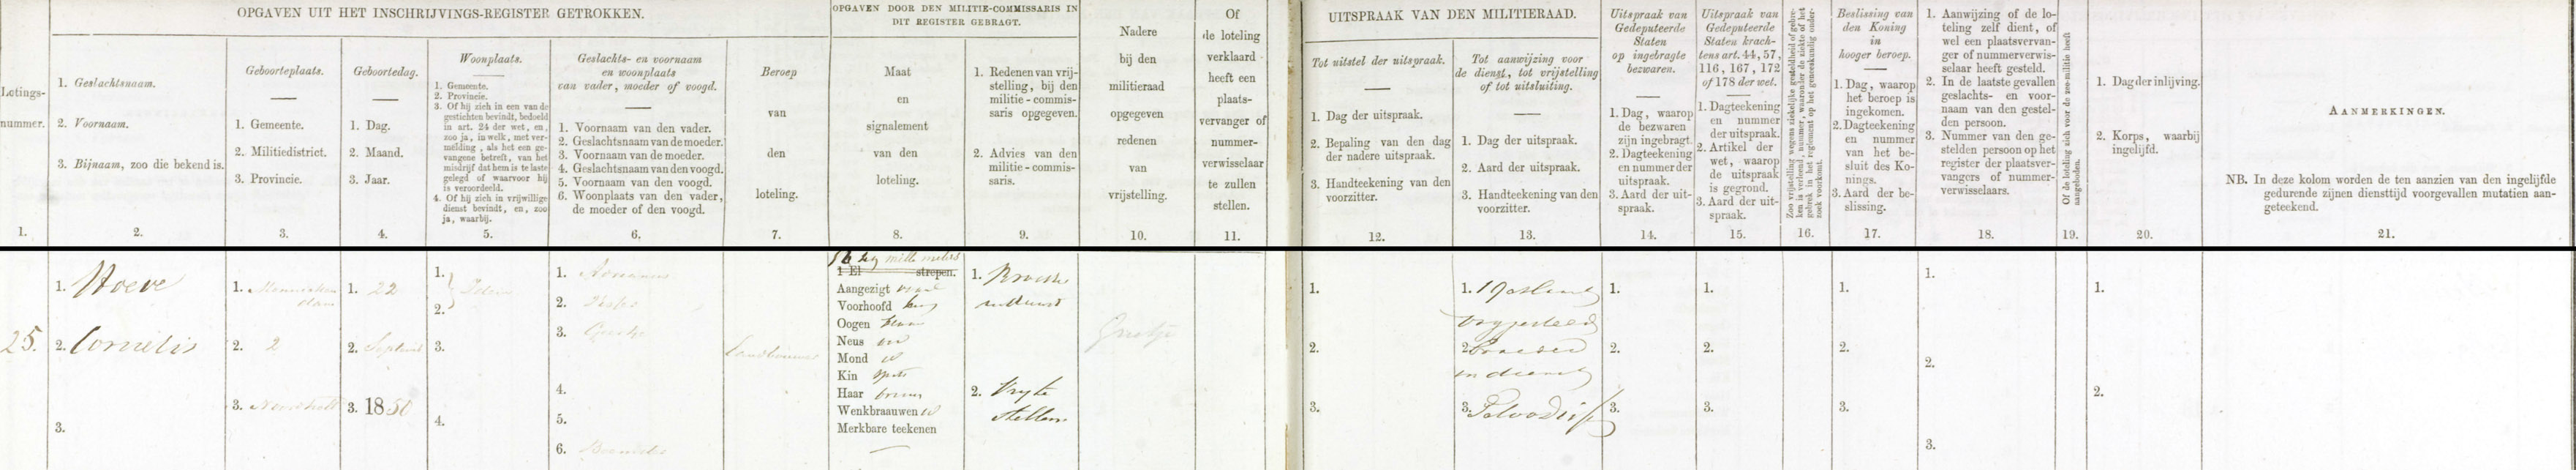 OPGAVEN UIT HET INSCHRIJVINGS-REGISTER GETROKKEN.
OPGAVEN DOOR DEN MILITIE-COMMISSARIS IN
DIT REGISTER GEBRAGT.
Lotings-
nummer.
1.
1. Geslachtsnaam.
2. Voornaam.
3. Bijnaam, zoo die bekend is.
2.
Geboorteplaats.
1. Gemeente.
2. Militiedistrict.
3. Provincie.
3.
Geboortedag.
1. Dag.
2. Maand.
3. Jaar.
4.
Woonplaats.
1. Gemeente.
2. Provincie.
3. Of hij zich in een van de
gestichten bevindt, bedoeld
in art. 24 der wet, en,
zoo ja, in welk, met ver-
melding, als het een ge-
vangene betreft, van het
misdrijf dat hem is te laste
gelegd of waarvoor hij
is veroordeeld.
4. Of hij zich in vrijwillige
dienst bevindt, en, zoo
ja, waarbij.
5.
Geslachts- en voornaam
en woonplaats
van vader, moeder of voogd.
1. Voornaam van den vader.
2. Geslachtsnaam van de moeder.
3. Voornaam van de moeder.
4. Geslachtsnaam van den voogd.
5. Voornaam van den voogd.
6. Woonplaats van den vader,
de moeder of den voogd.
6.
Beroep
van
den
loteling.
7.
Maat
en
signalement
van den
loteling.
8.
1. Redenen van vrij-
stelling, bij den
militie-commis-
saris opgegeven.
2. Advies van den
militie-commis-
saris.
9.
Nadere
bij den
militieraad
opgegeven
redenen
van
vrijstelling.
10.
Of
de loteling
verklaard
heeft een
plaats-
vervanger of
nummer-
verwisselaar
te zullen
stellen.
11.
UITSPRAAK VAN DEN MILITIERAAD.
Tot uitstel der uitspraak.
1. Dag der uitspraak.
2. Bepaling van den dag
der nadere uitspraak.
3. Handteekening van den
voorzitter.
12.
Tot aanwijzing voor
de dienst, tot vrijstelling
of tot uitsluiting.
1. Dag der uitspraak.
2. Aard der uitspraak.
3. Handteekening van den
voorzitter.
13.
Uitspraak van
Gedeputeerde
Staten
op ingebragte
bezwaren.
1. Dag, waarop
de bezwaren
zijn ingebragt.
2. Dagteekening
en nummer der
uitspraak.
3. Aard der uit-
spraak.
14.
Uitspraak van
Gedeputeerde
Staten krach-
tens art. 44, 57,
116, 167, 172
of 178 der wet.
1. Dagteekening
en nummer
der uitspraak.
2. Artikel der
wet, waarop
de uitspraak
is gegrond.
3. Aard der uit-
spraak.
15.
Zoo vrijstelling wegens ziekelijke gesteldheid of gebre-
ken is verleend, nummer, waaronder de ziekte of het
gebrek in het reglement op het geneeskundig onder-
zoek voorkomt.
16.
Beslissing van
den Koning
in
hooger beroep.
1. Dag, waarop
het beroep is
ingekomen.
2. Dagteekening
en nummer
van het be-
sluit des Ko-
nings.
3. Aard der be-
slissing.
17.
1. Aanwijzing of de lo-
teling zelf dient, of
wel een plaatsvervan-
ger of nummerverwis-
selaar heeft gesteld.
2. In de laatste gevallen
geslachts- en voor-
naam van den gestel-
den persoon.
3. Nummer van den ge-
stelden persoon op het
register der plaatsver-
vangers of nummer-
verwisselaars.
18.
Of de loteling zich voor de zee-militie heeft
aangeboden.
19.
1. Dag der inlijving.
2. Korps, waarbij
ingelijfd.
20.
AANMERKINGEN.
NB. In deze kolom worden de ten aanzien van den ingelijfde
gedurende zijnen diensttijd voorgevallen mutatien aan-
geteekend.
21.
25.
1. Hoeve
2. Cornelis
3.
1.
2. 2
3.
1. 22
2.
3. 1850
1.
2.
3.
4.
1.
2.
3.
4.
5.
6.
1 El strepen.
Aangezigt
Voorhoofd
Oogen
Neus
Mond
Kin
Haar
Wenkbraauwen
Merkbare teekenen
1. Broeder
2. Vrijte
stellen
Grootje
1.
2.
3.
1. 19
2.
3.
1.
2.
3.
1.
2.
3.
1.
2.
3.
1.
2.
3.
1.
2.